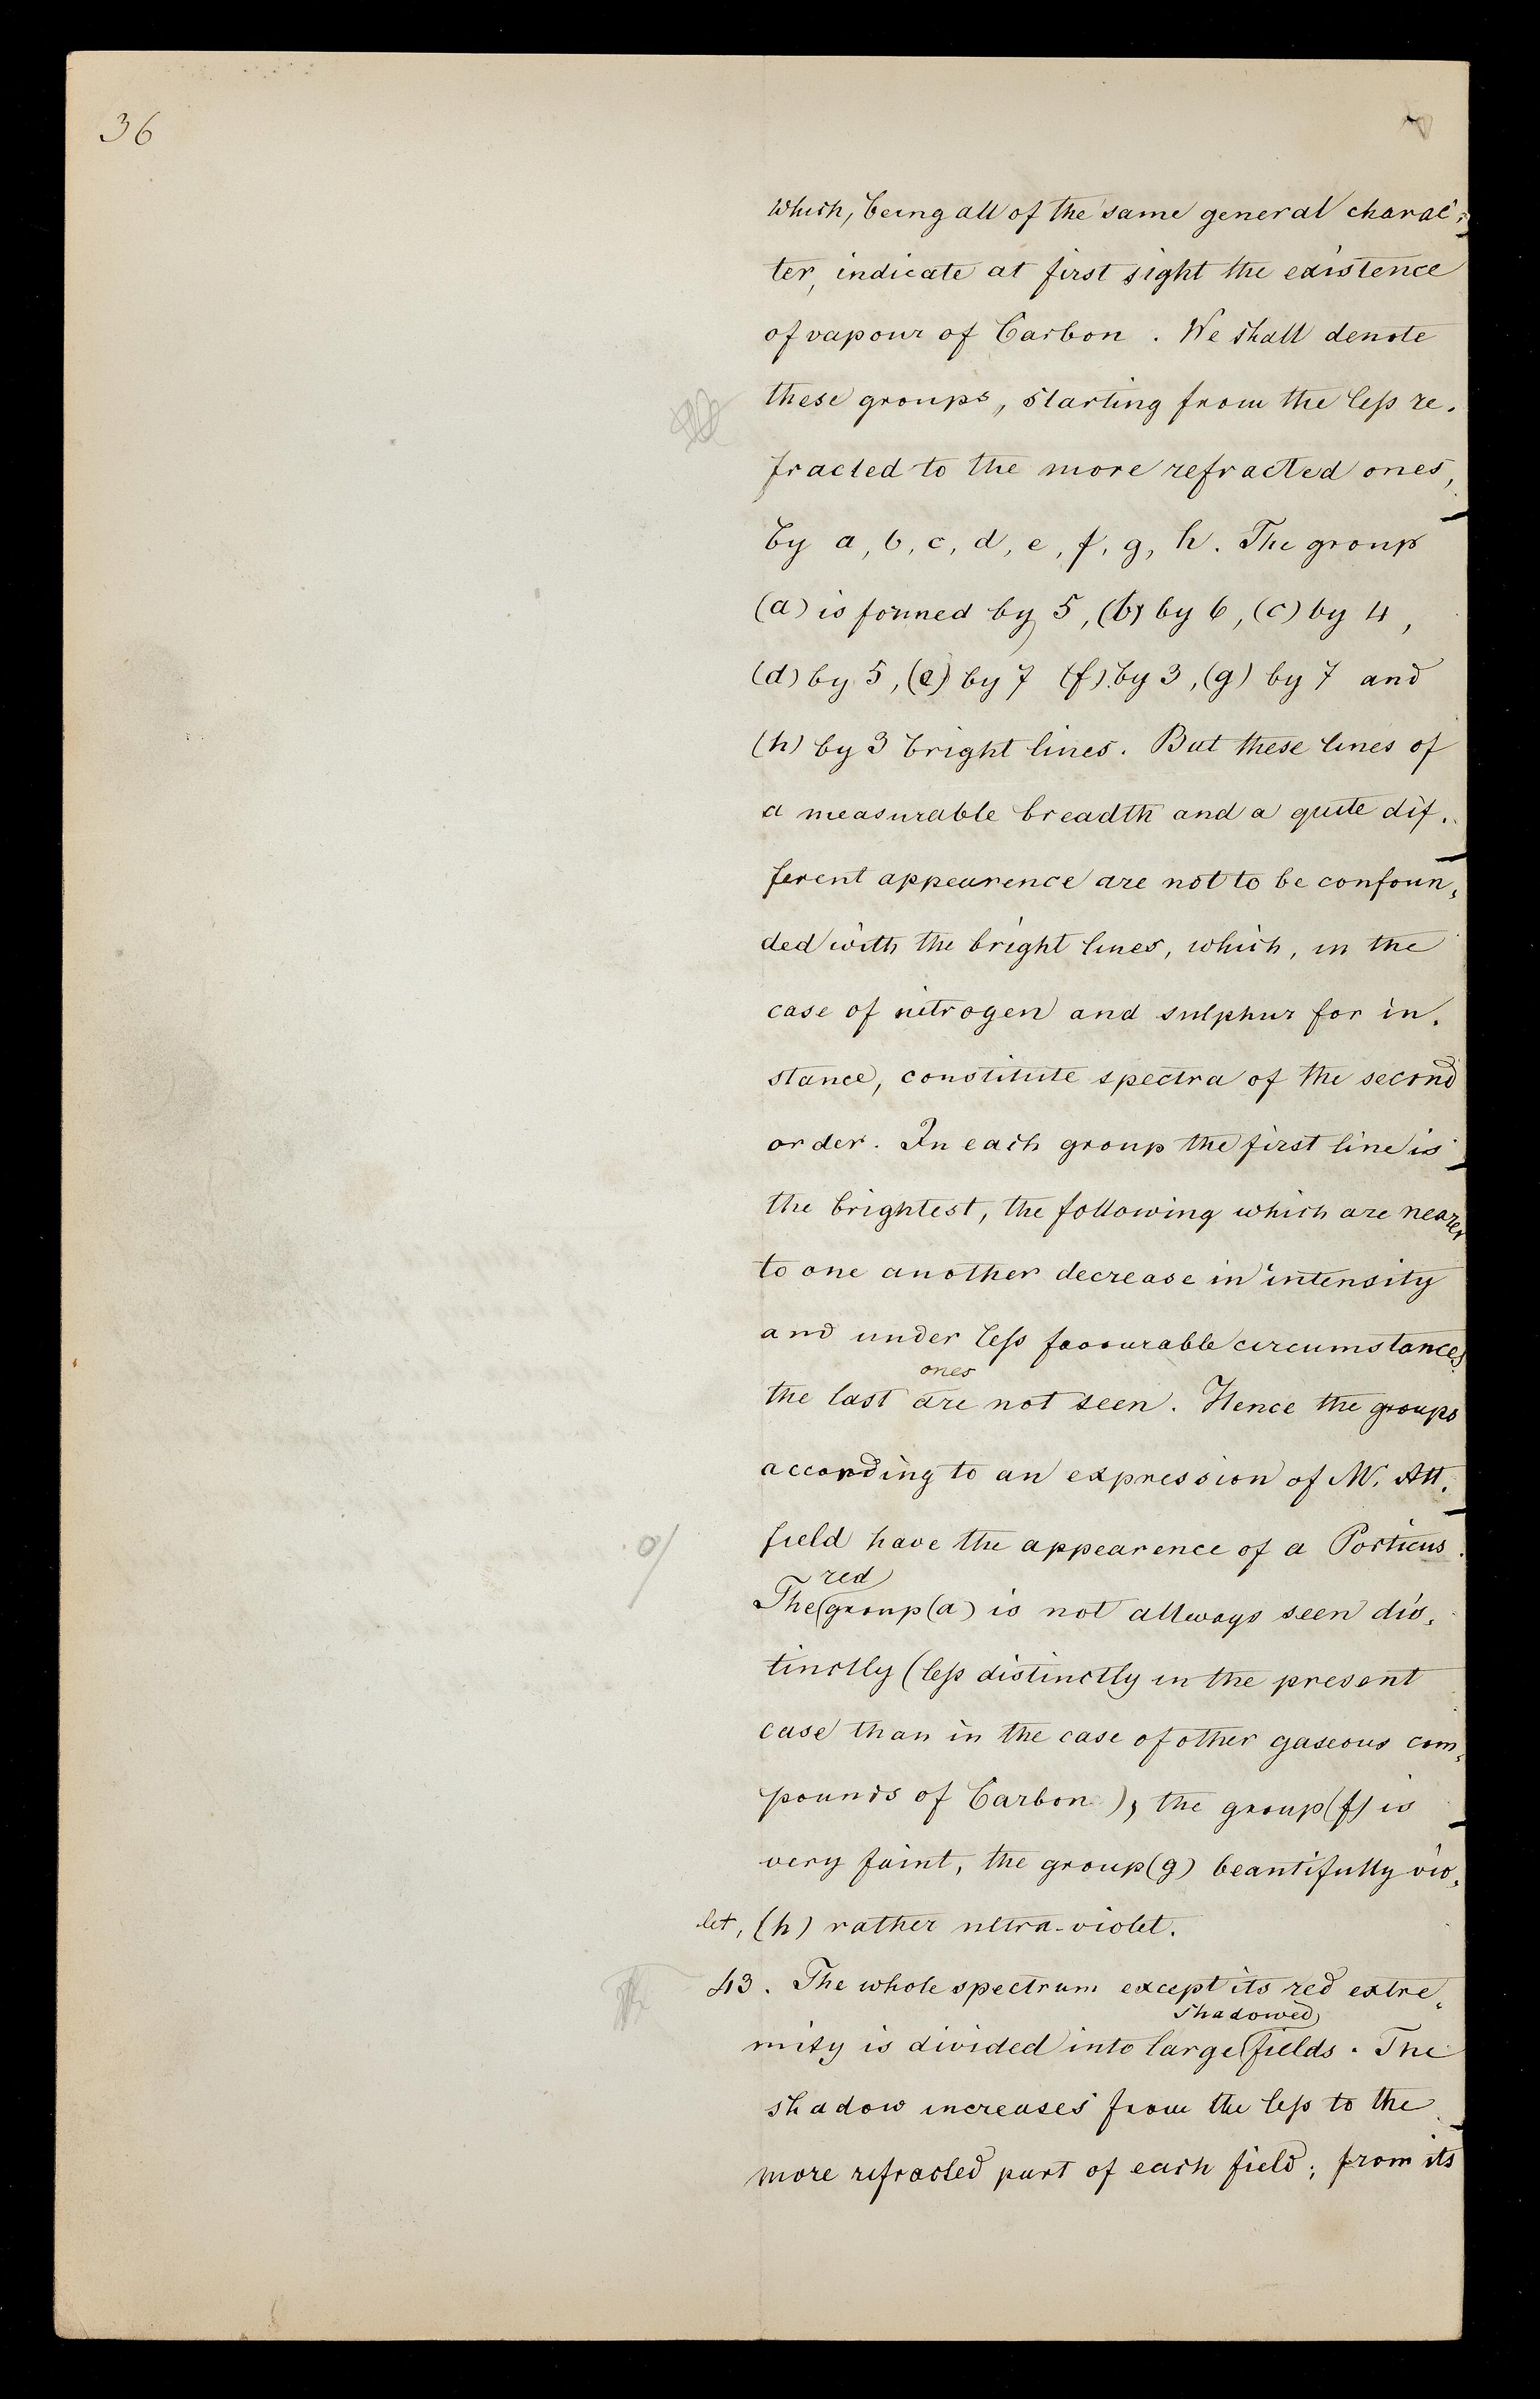 36
which, being all of the same general charac-
ter, indicate at first sight the existence
of vapour of Carbon. We shall denote
these groups, starting from the less re-
fracted to the more refracted ones,
by a, b, c, d, e, f, g, h. The group
(a) is formed by 5, (b) by 6, (c) by 4,
(d) by 5, (e) by 7 (f) by 3, (g) by 7 and
(h) by 3 bright lines. But these lines of
a measurable breadth and a quite dif-
ferent appearence are not to be confoun-
ded with the bright lines, which, in the
case of nitrogen and sulphur for in-
stance, constitute spectra of the second
order. In each group the first line is
the brightest, the following which are nearer
to one another decrease in intensity
and under less favourable circumstances
ones
the last are not seen. Hence the groups
according to an expression of M. Att-
field have the appearence of a Porticus.
red
The group (a) is not allways seen dis-
tinctly (less distinctly in the present
case than in the case of other gaseous com-
pounds of Carbon), the group (f) is
very faint, the group (g) beautifully vio-
let, (h) rather ultra-violet.
43. The whole spectrum except its red extre-
shadowed
mity is divided into large fields. The
shadow increases from the less to the
more refracted part of each field; from its